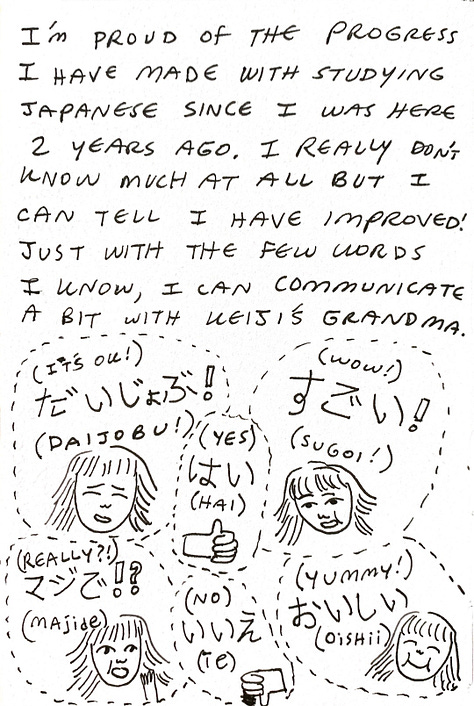 I'm PROUD OF THE PROGRESS
I HAVE MADE WITH STUDYING
JAPANESE SINCE I WAS HERE
2 YEARS AGO. I REALLY DON'T
KNOW MUCH AT ALL BUT I
CAN TELL I HAVE IMPROVED!
JUST WITH THE FEW WORDS
I KNOW, I CAN COMMUNICATE
A BIT WITH KEIJI'S GRANDMA.
(IT'S OK!)
だいじょぶ!
(DAIJOBU!)
(YES)
はい
(HAI)
(WOW!)
すごい!
(SUGOI!)
(REALLY?!)
マジで!?
(MAJIDE)
(NO)
いいえ
(IE)
(YUMMY!)
おいしい
(OISHII)